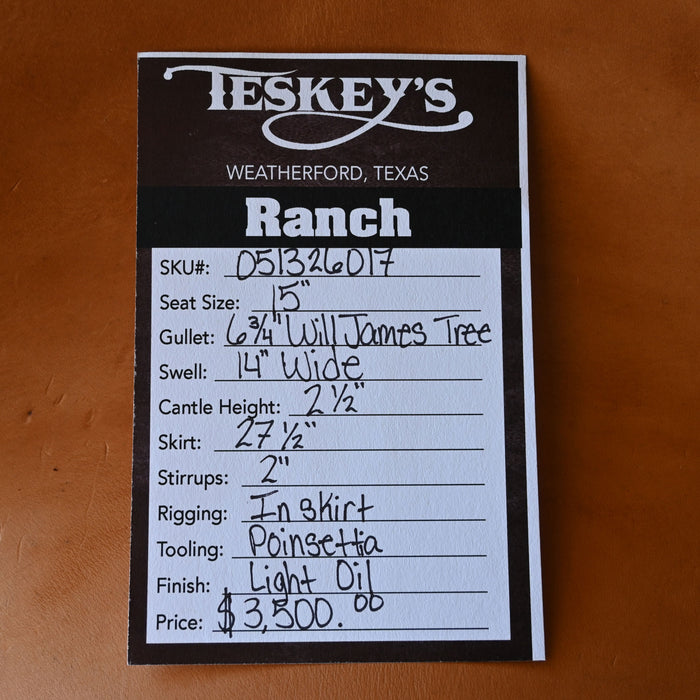 TESKEY'S
WEATHERFORD, TEXAS
Ranch
SKU#: 051326017
Seat Size: 15"
Gullet: 6 3/4" Will James Tree
Swell: 14" Wide
Cantle Height: 2 1/2"
Skirt: 27 1/2"
Stirrups: 2"
Rigging: In skirt
Tooling: Poinsettia
Finish: Light Oil
Price: $3,500.00